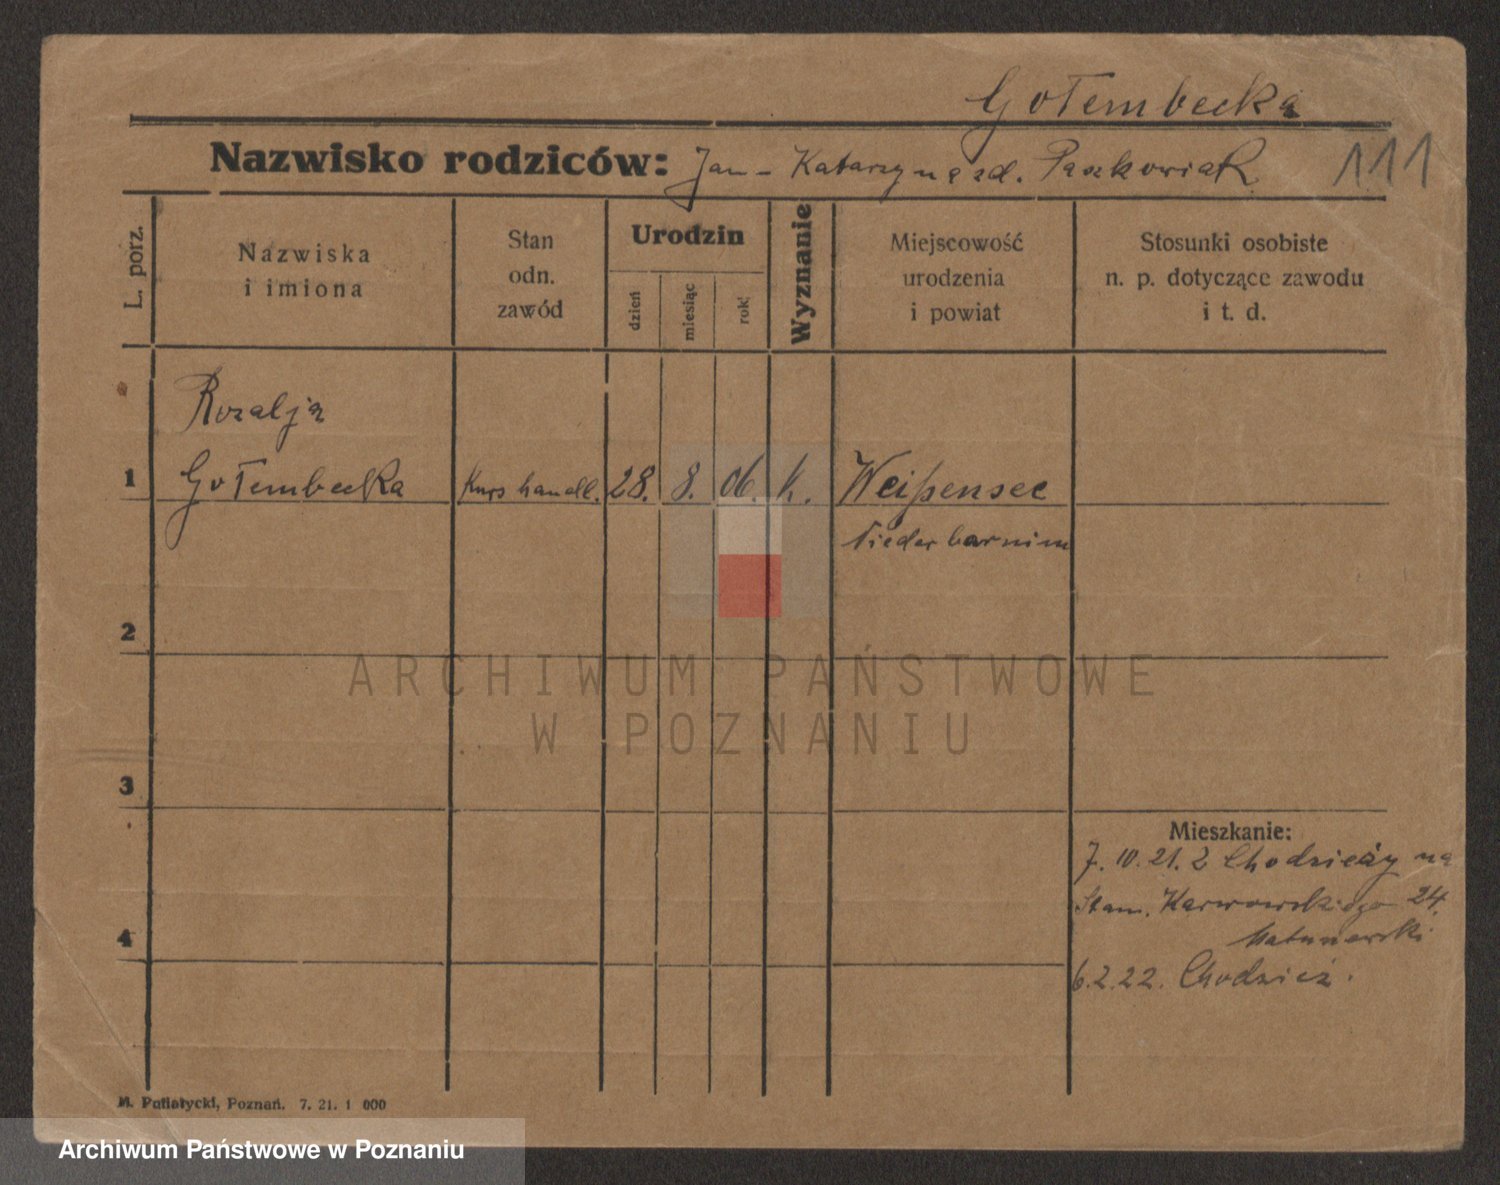 Gołembecka
Nazwisko rodziców: Jan - Katarzyna zd. Paszkowiak
111
L. porz.
Nazwiska
i imiona
Stan
odn.
zawód
Urodzin
dzień
miesiąc
rok
Wyznanie
Miejscowość
urodzenia
i powiat
Stosunki osobiste
n. p. dotyczące zawodu
i t. d.
Rozalja
1 Gołembecka Kurs handl. 28. 8. 06. k. Weißensee
Niederbarnim
2
3
Mieszkanie:
7. 10. 21. z Chodzieży na
Stam. Karwowskiego 24.
4
6.2.22. Chodzież.
M. Putiatycki, Poznań. 7. 21. 1 000
ARCHIWUM PAŃSTWOWE
W POZNANIU
Archiwum Państwowe w Poznaniu